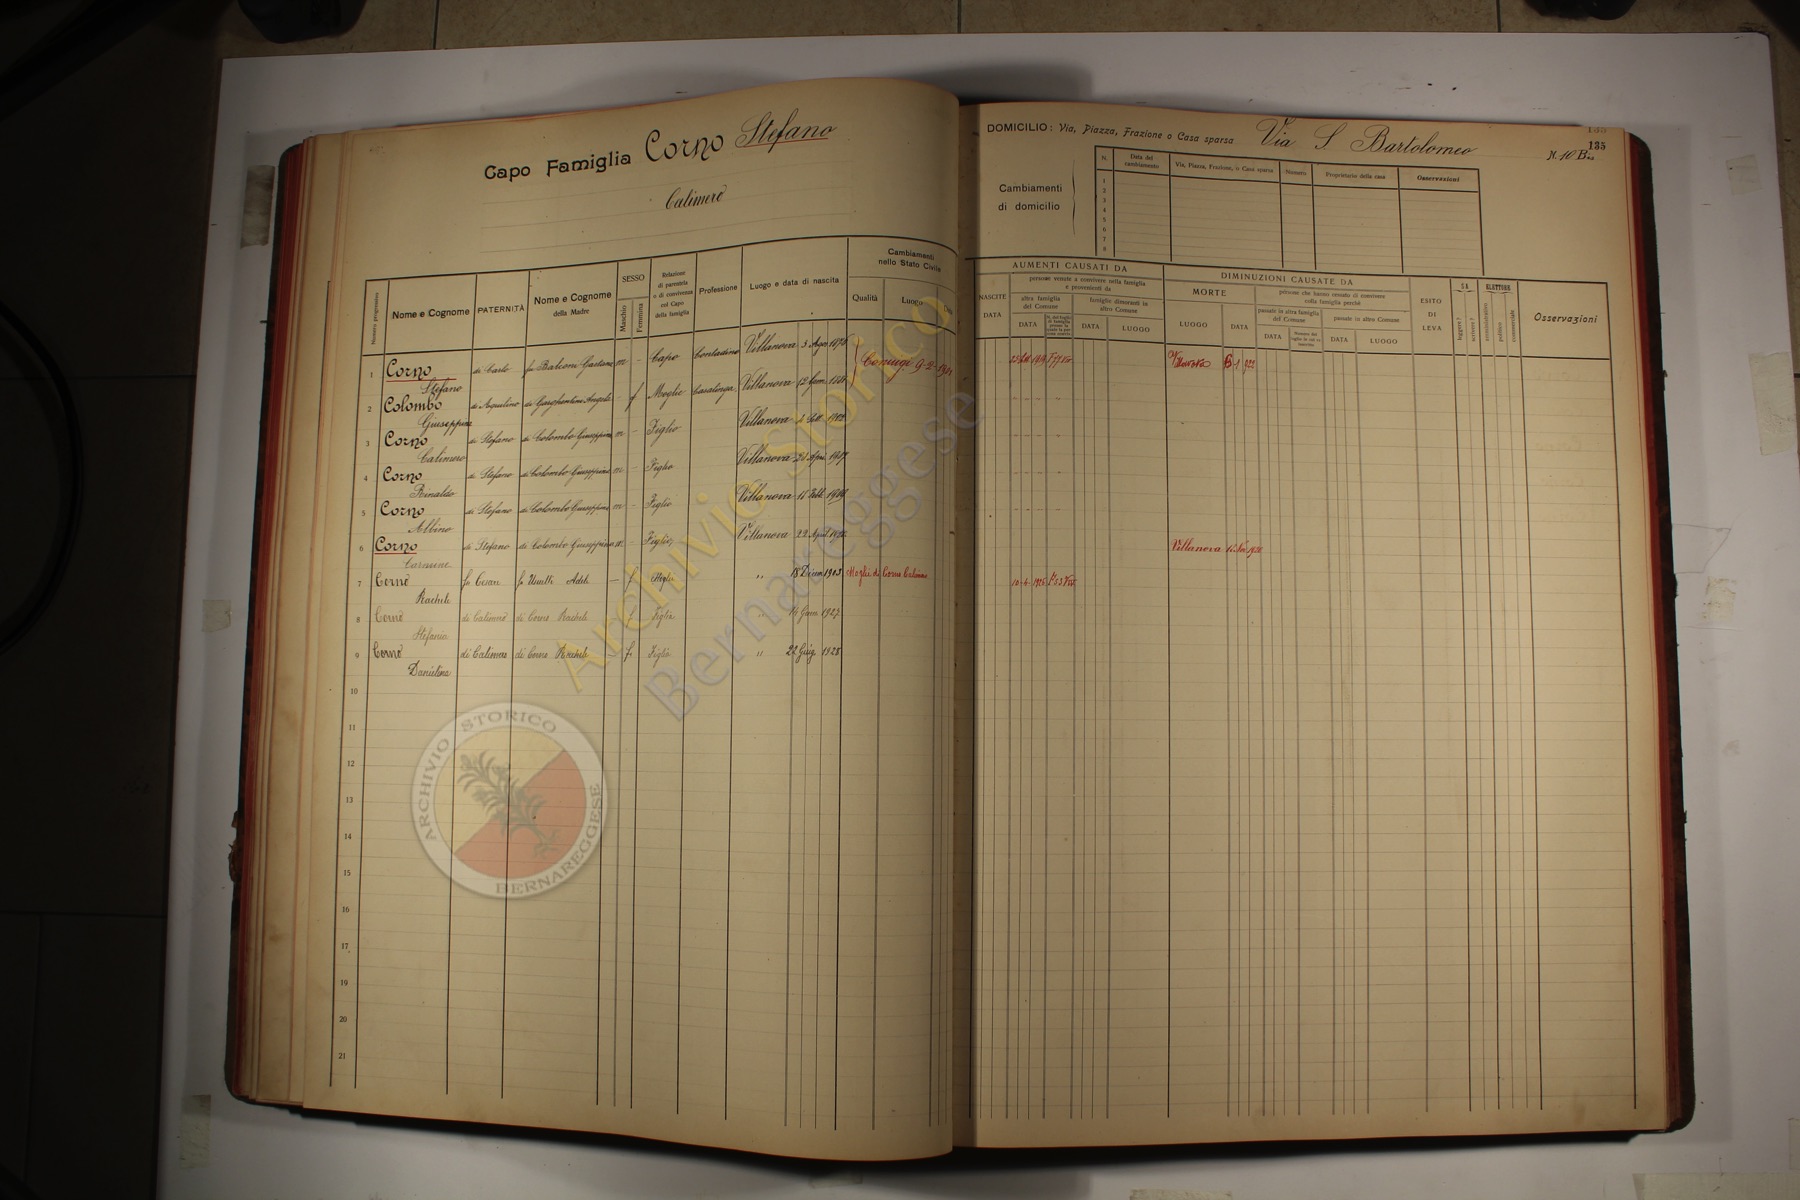 Capo Famiglia Corno Stefano
Calimero
DOMICILIO: Via, Piazza, Frazione o Casa sparsa Via S Bartolomeo N. 10 Bis
135
Cambiamenti
di domicilio
N. Data del cambiamento Via, Piazza, Frazione, o Casa sparsa Numero Proprietario della casa Osservazioni
1
2
3
4
5
6
7
8
Numero progressivo Nome e Cognome PATERNITÀ Nome e Cognome della Madre SESSO Maschio Femmina Relazione di parentela o di convivenza col Capo della famiglia Professione Luogo e data di nascita Cambiamenti nello Stato Civile Qualità Luogo
AUMENTI CAUSATI DA
NASCITE DATA
persone venute a convivere nella famiglia e provenienti da
altra famiglia del Comune DATA
famiglie dimoranti in altro Comune DATA LUOGO
DIMINUZIONI CAUSATE DA
MORTE LUOGO DATA
persone che hanno cessato di convivere colla famiglia perchè
passate in altra famiglia del Comune DATA
passate in altro Comune DATA LUOGO
ESITO DI LEVA
SA leggere? scrivere?
ELETTORE amministrativo politico commerciale
Osservazioni
1 Corno Stefano di Carlo fu Balconi Gaetana m - Capo Contadino Villanova 3 Agos. Coniugi 9-2-1901 Villanova
2 Colombo Giuseppina di Aquilino di Garghentini Angela - f Moglie Casalinga Villanova 12 Genn.
3 Corno Calimero di Stefano di Colombo Giuseppina m - Figlio Villanova 4 Sett. 1902
4 Corno Rinaldo di Stefano di Colombo Giuseppina m - Figlio Villanova 21 Apri. 1907
5 Corno Albino di Stefano di Colombo Giuseppina m - Figlio Villanova 15 Febb. 1910
6 Corno Carmine di Stefano di Colombo Giuseppina m - Figlio Villanova 22 Villanova
7 Corno Rachele fu Cesare fu Usuelli Adele - f Moglie " 18 Dicem 1903 Moglie di Corno Calimero 10-4-1926
8 Corno Stefania di Calimero di Corno Rachele f Figlia " 14 Genn. 1927
9 Corno Danielina di Calimero di Corno Rachele f Figlia " 22 Giug. 1928
10
11
12
13
14
15
16
17
18
19
20
21
Archivio Storico
Bernareggese
ARCHIVIO STORICO
BERNAREGGESE